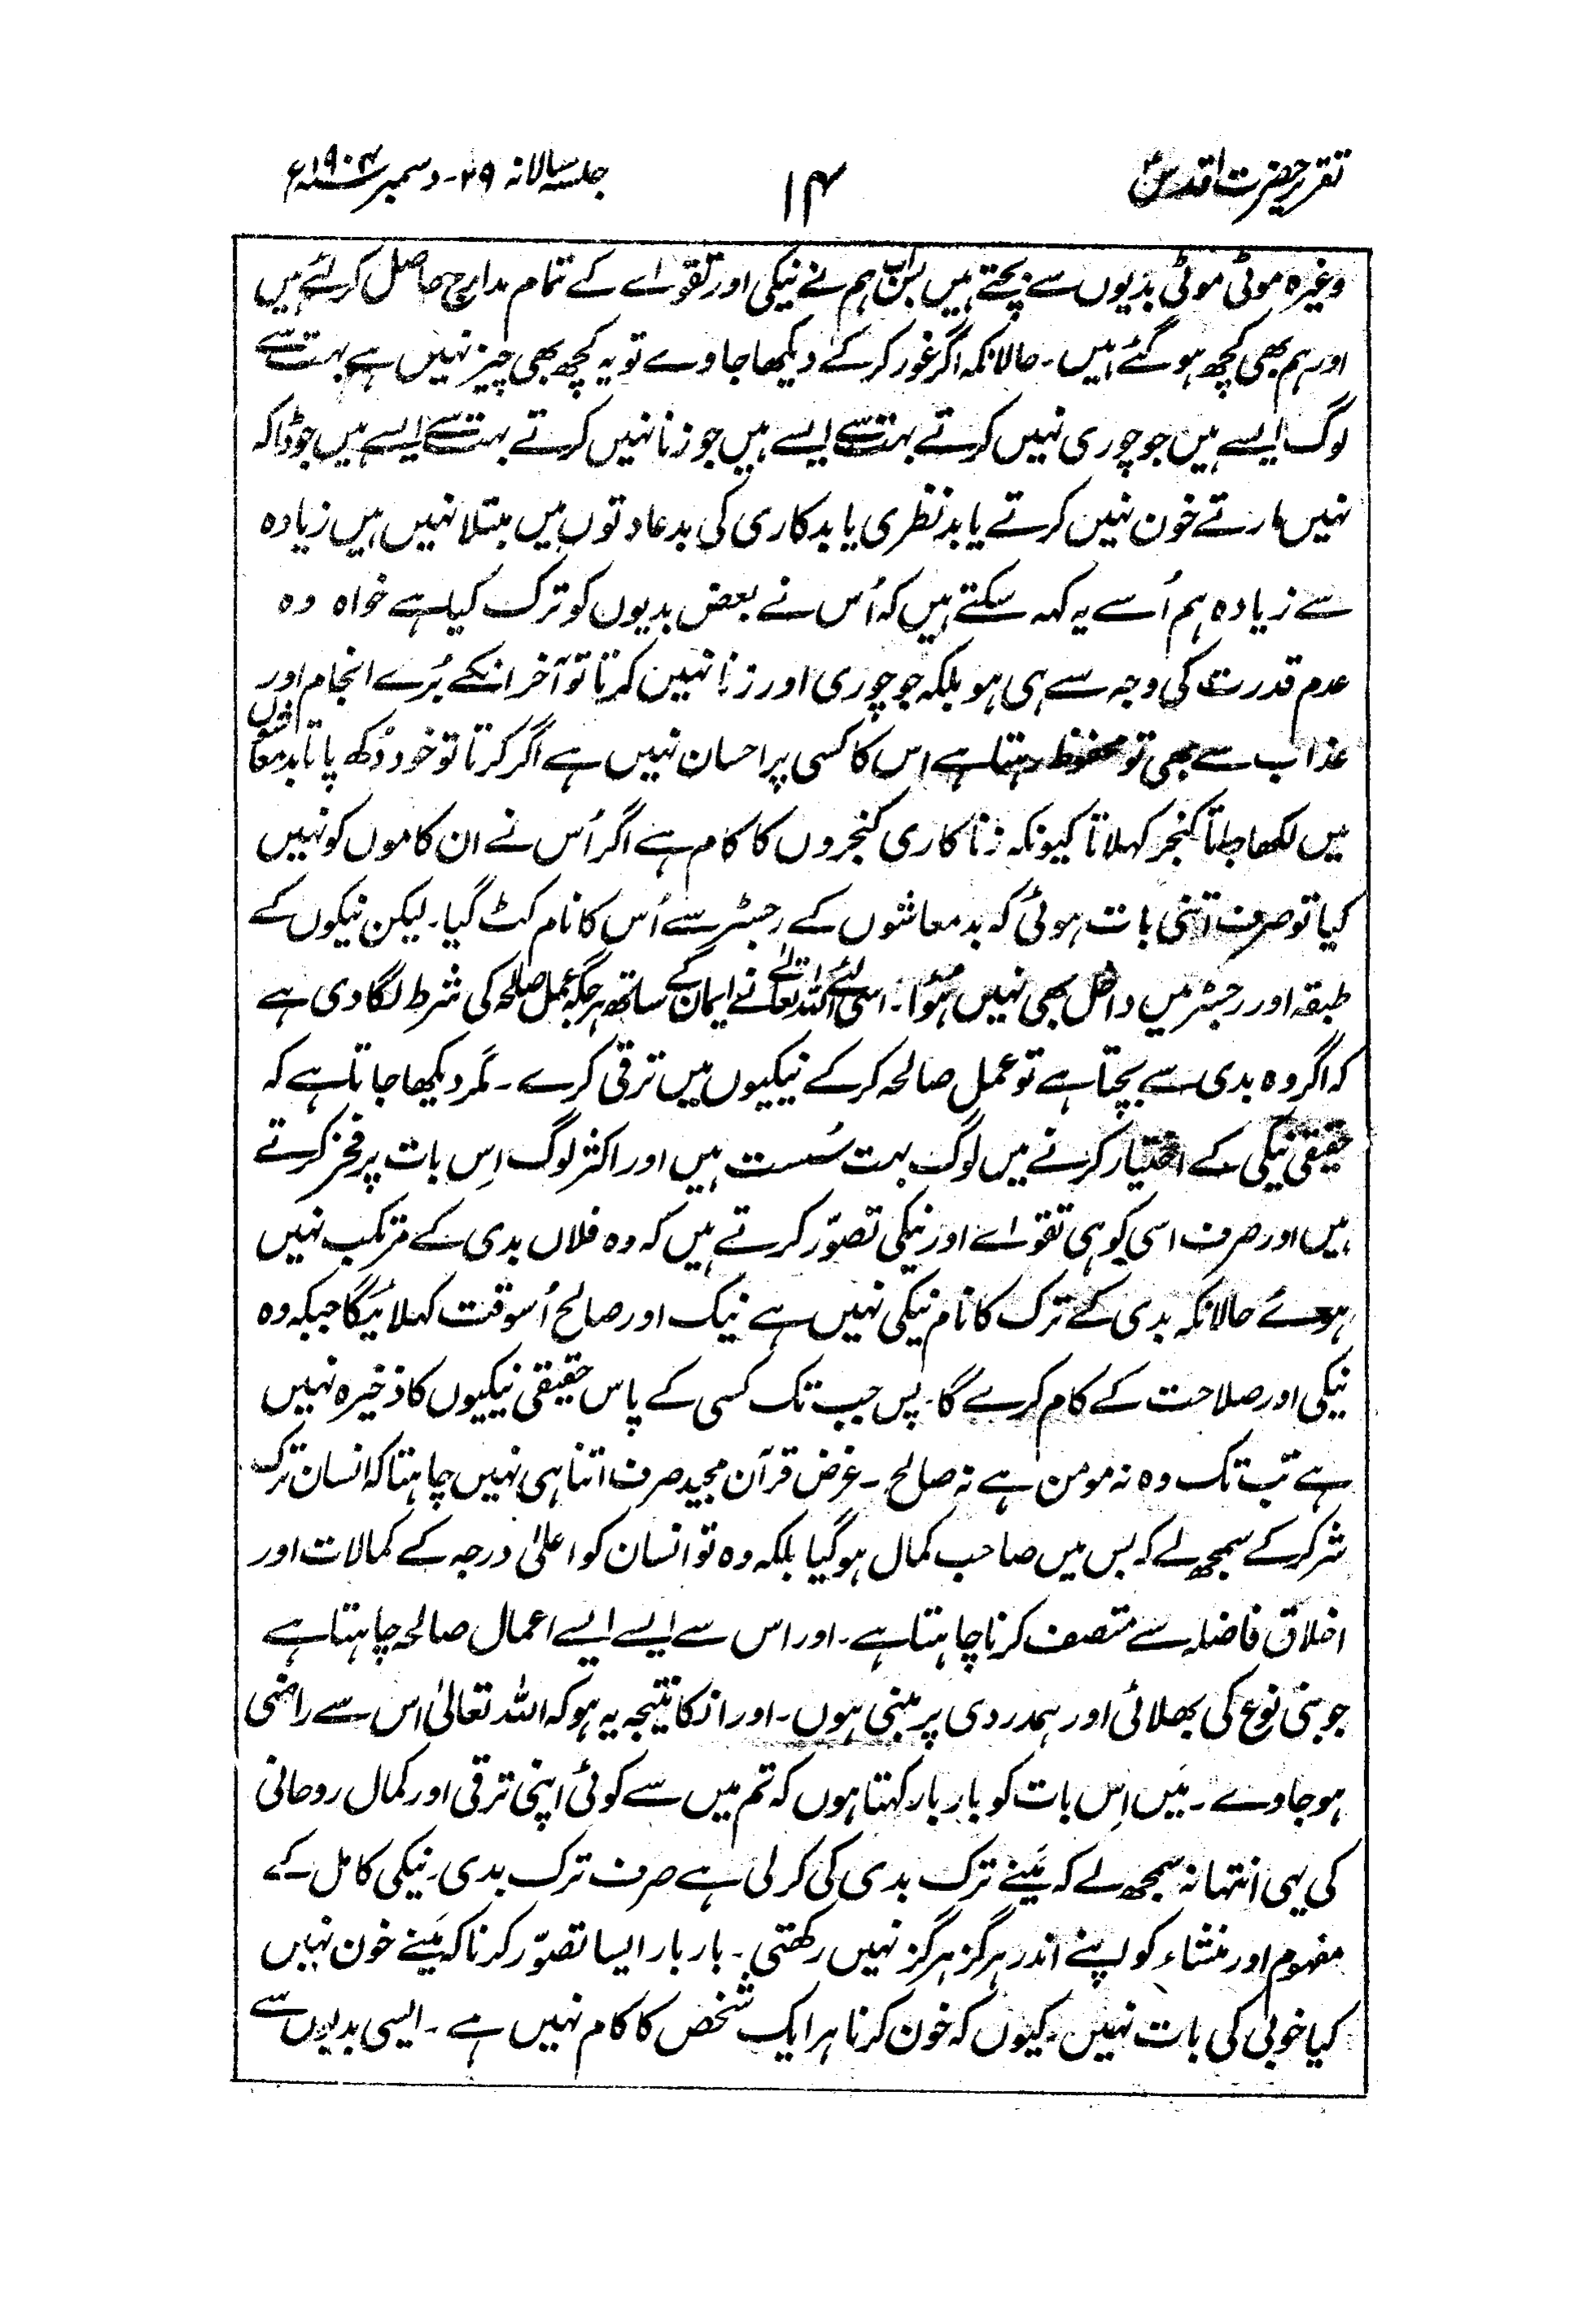 تقریر حضرت اقدسؑ
۱۴
جلسہ سالانہ ۲۹-دسمبر ۱۹۰۴ء
وغیرہ موٹی موٹی بدیوں سے بچتے ہیں بس ہم نے نیکی اور تقوےٰ کے تمام مدارج حاصل کرلئے ہیں
اور ہم بھی کچھ ہو گئے ہیں۔ حالانکہ اگر غور کرکے دیکھا جاوے تو یہ کچھ بھی چیز نہیں ہے بہت سے
لوگ ایسے ہیں جو چوری نہیں کرتے بہت سے ایسے ہیں جو زنا نہیں کرتے بہت سے ایسے ہیں جو ڈاکہ
نہیں مارتے خون نہیں کرتے یا بدنظری یا بدکاری کی بدعادتوں میں مبتلا نہیں ہیں زیادہ
سے زیادہ ہم اُسے یہ کہہ سکتے ہیں کہ اُس نے بعض بدیوں کو ترک کیا ہے خواہ وہ
عدم قدرت کی وجہ سے ہی ہو بلکہ جو چوری اور زنا نہیں کرتا تو آخر انکے بُرے انجام اور
عذاب سے بھی تو محفوظ رہتا ہے اس کا کسی پر احسان نہیں ہے اگر کرتا تو خود دُکھ پاتا بدمعاشوں
میں لکھا جاتا کنجر کہلاتا کیونکہ زناکاری کنجروں کا کام ہے اگر اُس نے ان کاموں کو نہیں
کیا تو صرف اتنی بات ہوئی کہ بدمعاشوں کے رجسٹر سے اُس کا نام کٹ گیا۔ لیکن نیکوں کے
طبقہ اور رجسٹر میں داخل بھی نہیں ہؤا۔ اسی لئے اللہ تعالےٰ نے ایمان کے ساتھ ہر جگہ عمل صالحہ کی شرط لگا دی ہے
کہ اگر وہ بدی سے بچتا ہے تو عمل صالحہ کرکے نیکیوں میں ترقی کرے۔ مگر دیکھا جاتا ہے کہ
حقیقی نیکی کے اختیار کرنے میں لوگ بہت سُست ہیں اور اکثر لوگ اِس بات پر فخر کرتے
ہیں اور صرف اسی کو ہی تقوےٰ اور نیکی تصوّر کرتے ہیں کہ وہ فلاں بدی کے مرتکب نہیں
ہوئے حالانکہ بدی کے ترک کا نام نیکی نہیں ہے نیک اور صالح اُسوقت کہلائیگا جبکہ وہ
نیکی اور صلاحت کے کام کرے گا۔ پس جب تک کسی کے پاس حقیقی نیکیوں کا ذخیرہ نہیں
ہے تب تک وہ نہ مومن ہے نہ صالح۔ غرض قرآن مجید صرف اتنا ہی نہیں چاہتا کہ انسان ترک
شر کرکے سمجھ لے کہ بس میں صاحب کمال ہو گیا بلکہ وہ تو انسان کو اعلیٰ درجہ کے کمالات اور
اخلاق فاضلہ سے متصف کرنا چاہتا ہے۔ اور اس سے ایسے ایسے اعمال صالحہ چاہتا ہے
جو بنی نوع کی بھلائی اور ہمدردی پر مبنی ہوں۔ اور انکا نتیجہ یہ ہو کہ اللہ تعالیٰ اس سے راضی
ہو جاوے۔ مَیں اِس بات کو بار بار کہتا ہوں کہ تم میں سے کوئی اپنی ترقی اور کمال روحانی
کی یہی انتہا نہ سمجھ لے کہ مَینے ترک بدی کی کرلی ہے صرف ترک بدی۔ نیکی کامل کے
مفہوم اور منشاء کو اپنے اندر ہرگز ہرگز نہیں رکھتی۔ بار بار ایسا تصوّر کرنا کہ مَینے خون نہیں
کیا خوبی کی بات نہیں۔ کیوں کہ خون کرنا ہر ایک شخص کا کام نہیں ہے۔ ایسی بدیوں سے